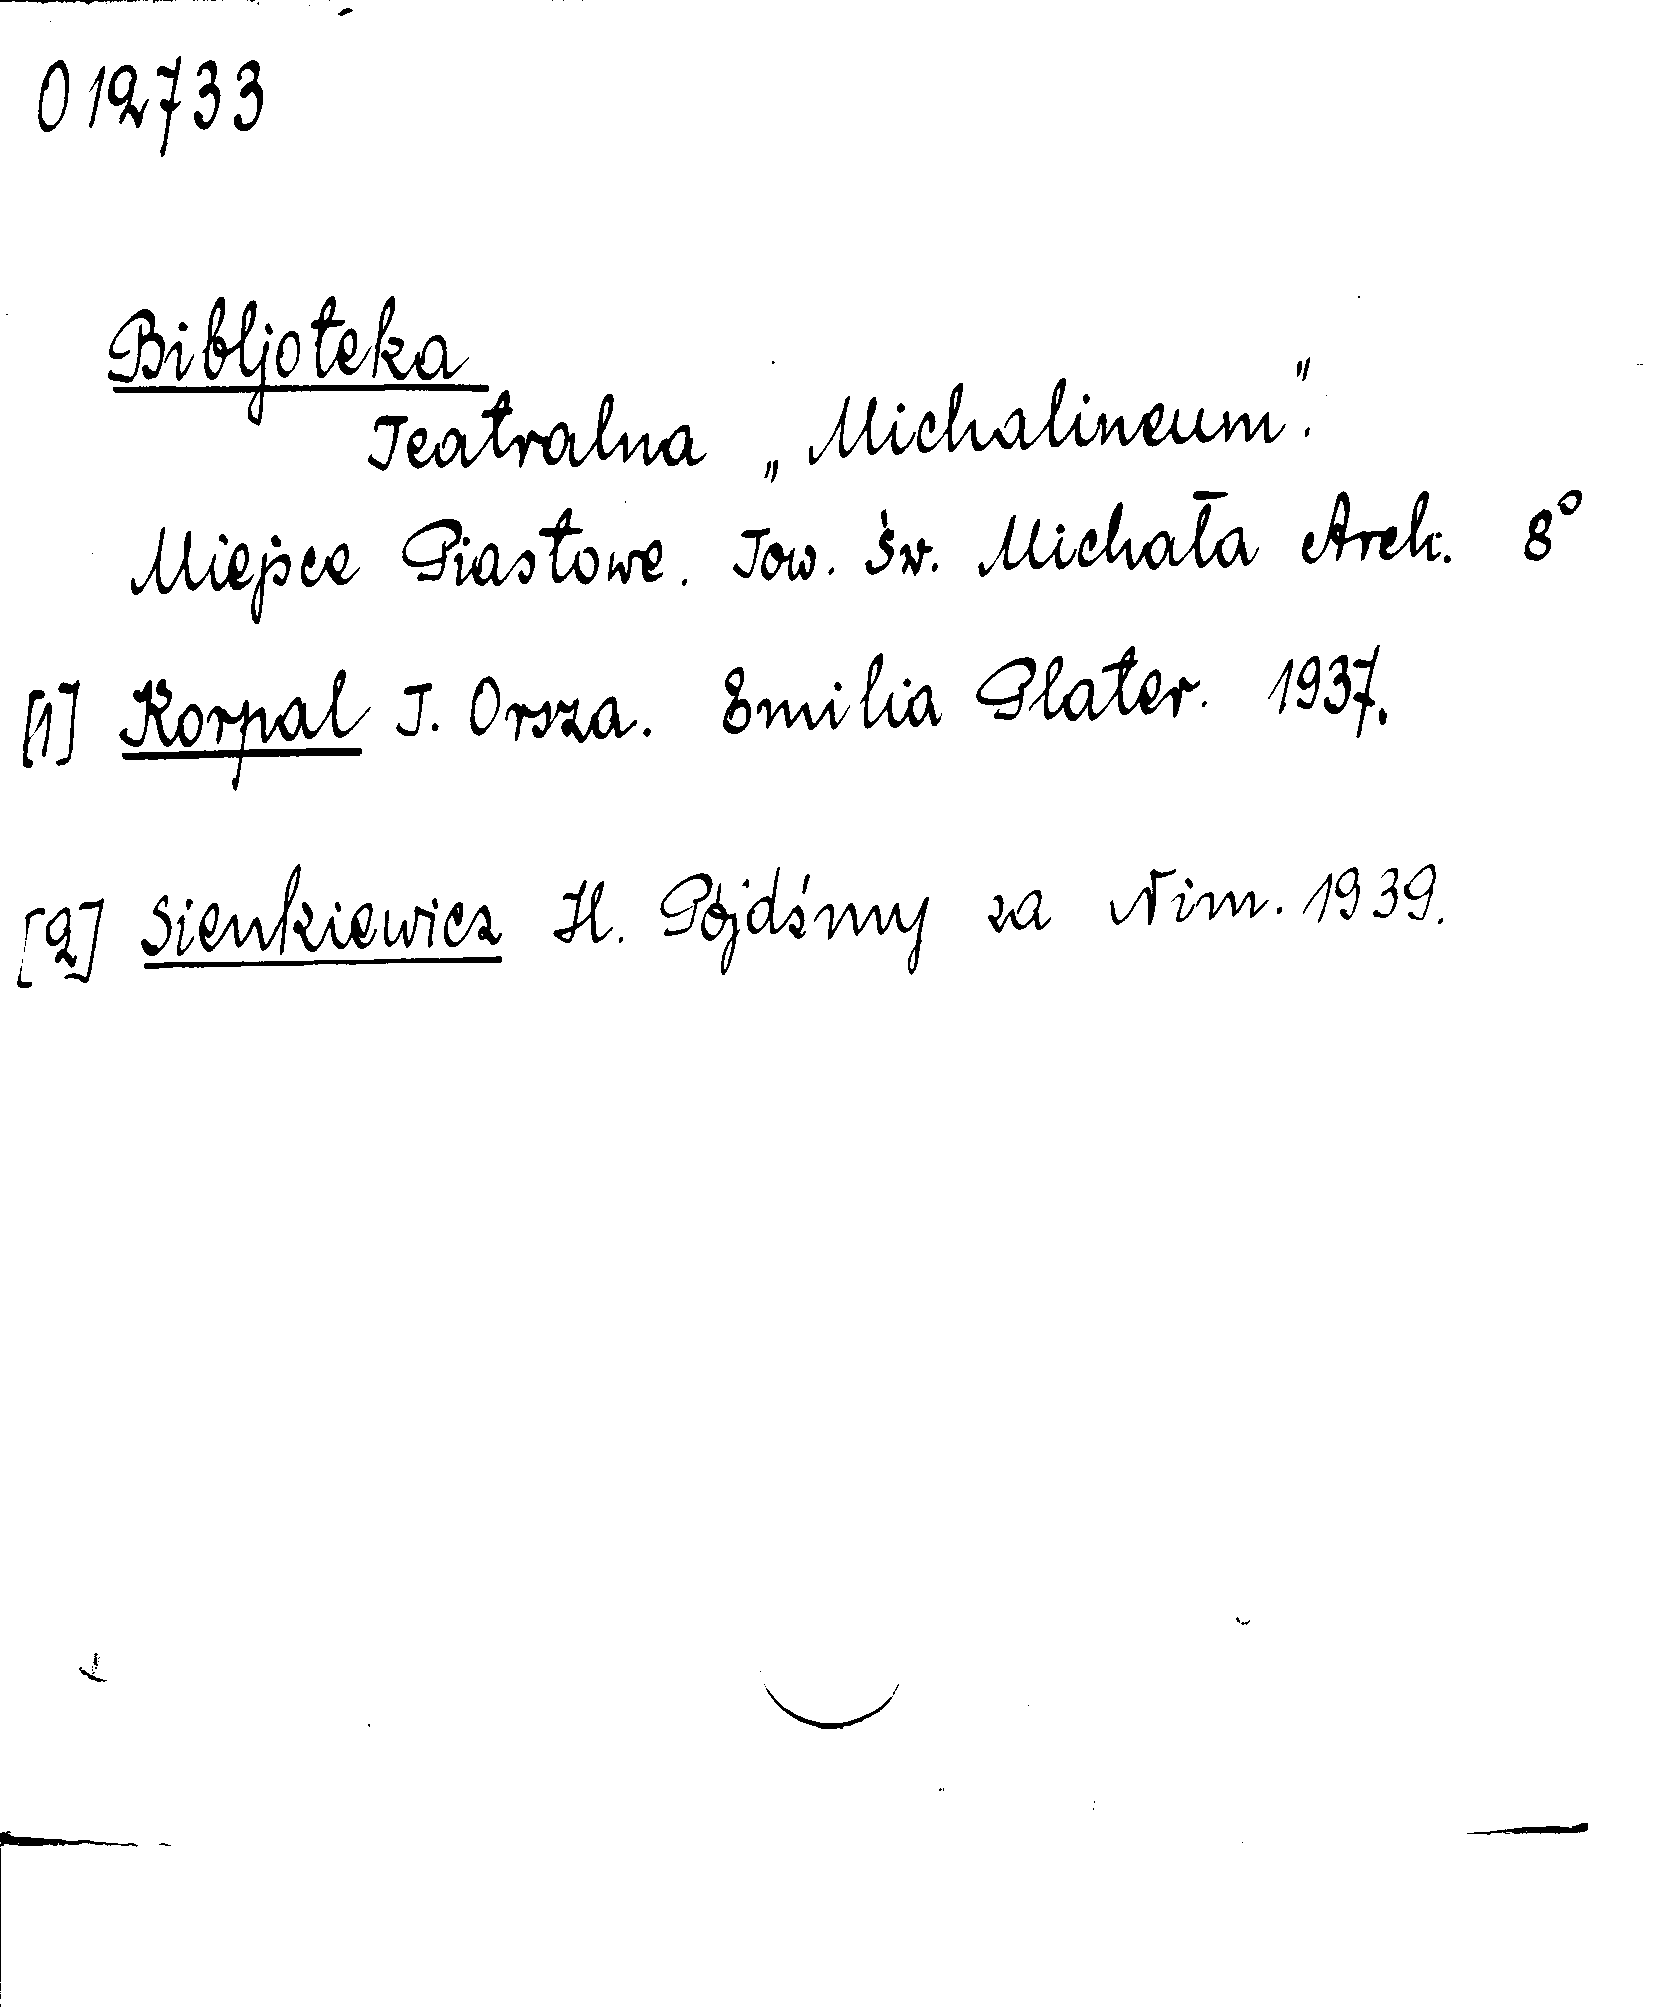 012733
Bibljoteka
Teatralna „Michalineum".
Miejsce Piastowe. Tow. św. Michała Arch. 8°
[1] Korpal J. Orsza. Emilia Plater. 1937.
[2] Sienkiewicz H. Pójdźmy za Nim. 1939.